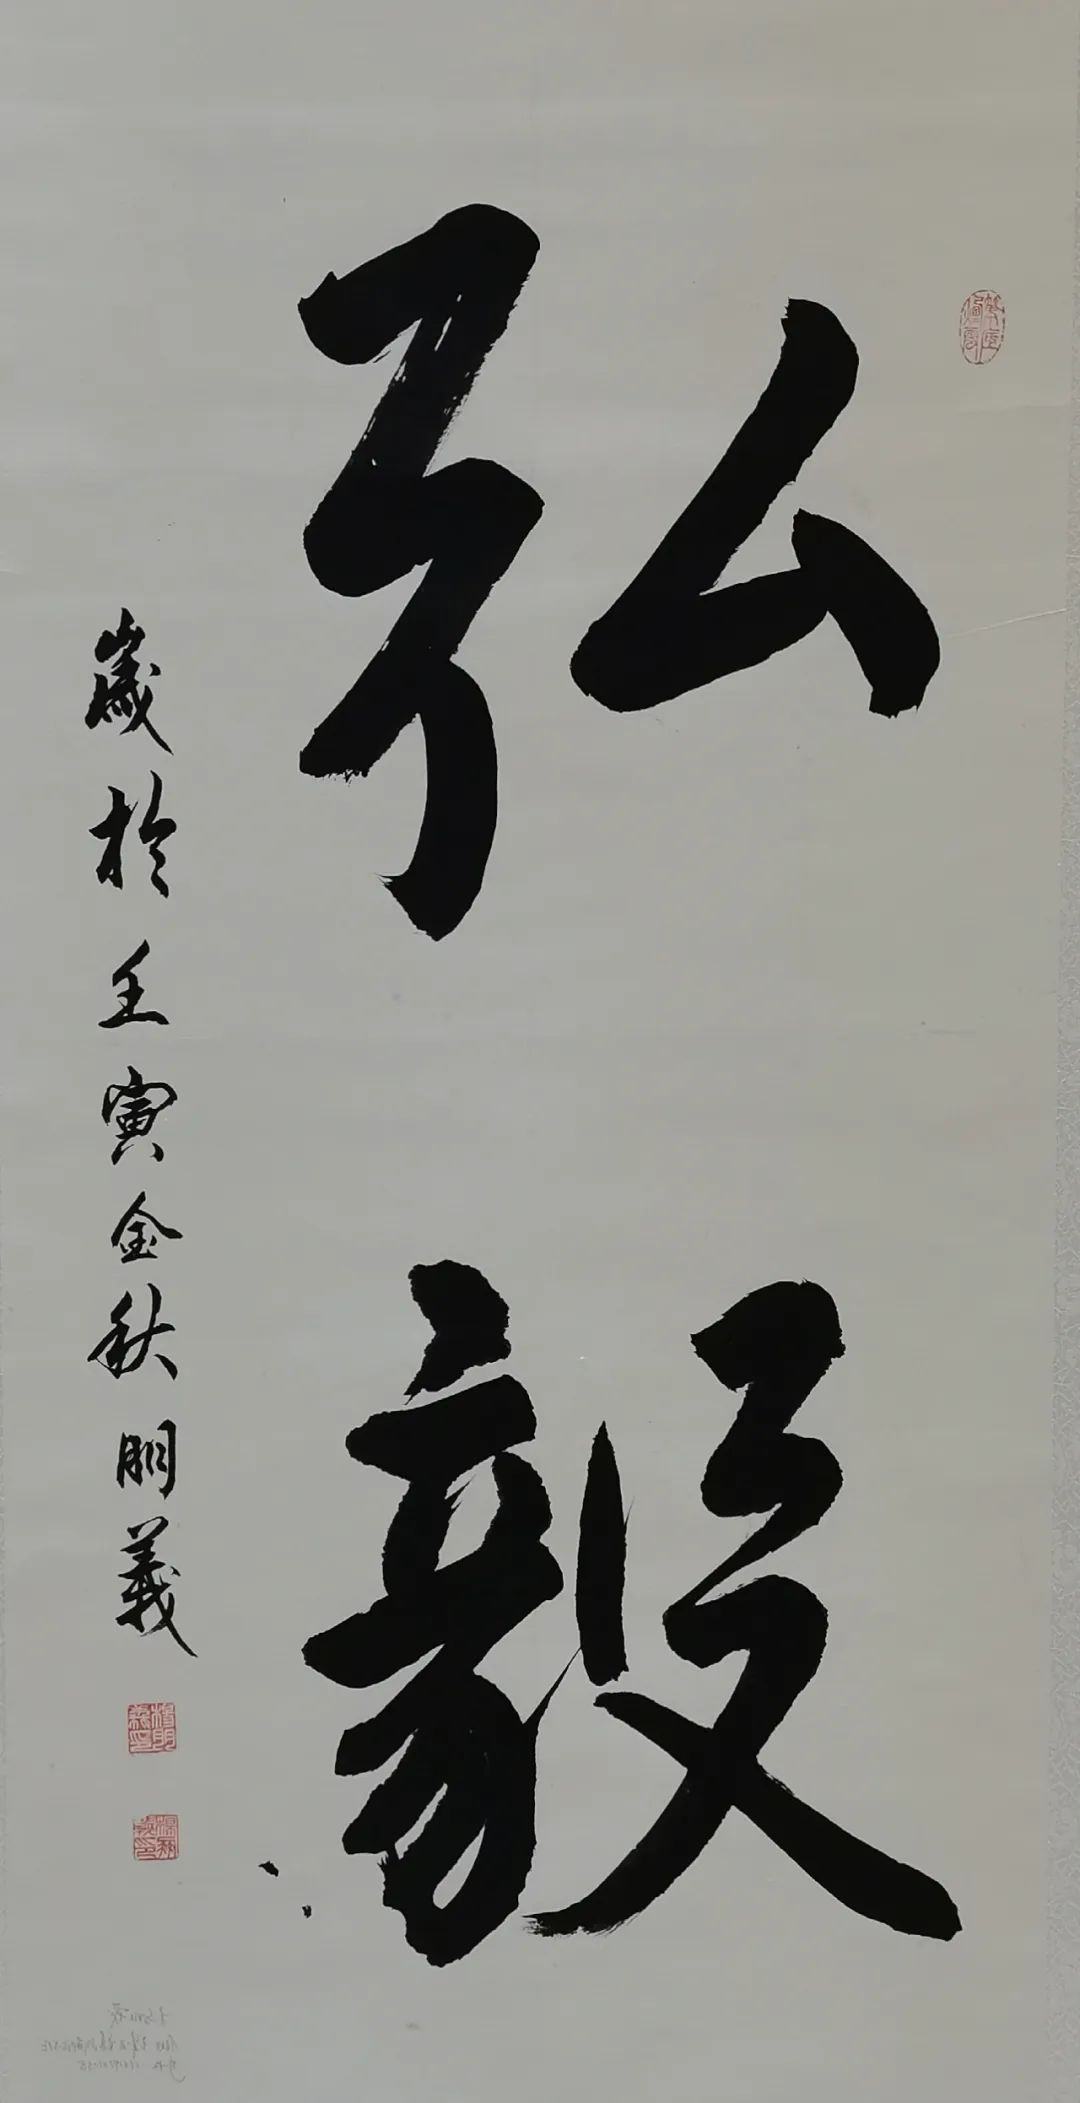 弘毅
歲於壬寅金秋明義